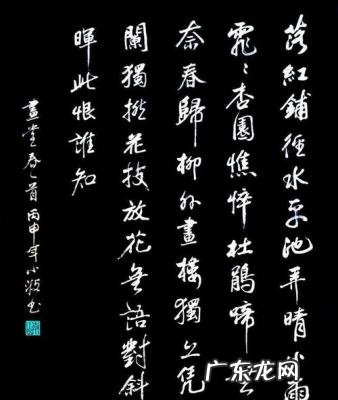 落紅鋪徑水平池弄晴小雨
霏〻杏園憔悴杜鵑啼无
奈春歸柳外畫樓獨上凭
闌獨撚花枝放花無語對斜
暉此恨誰知
畫堂春一首丙申年小书
广东龙网